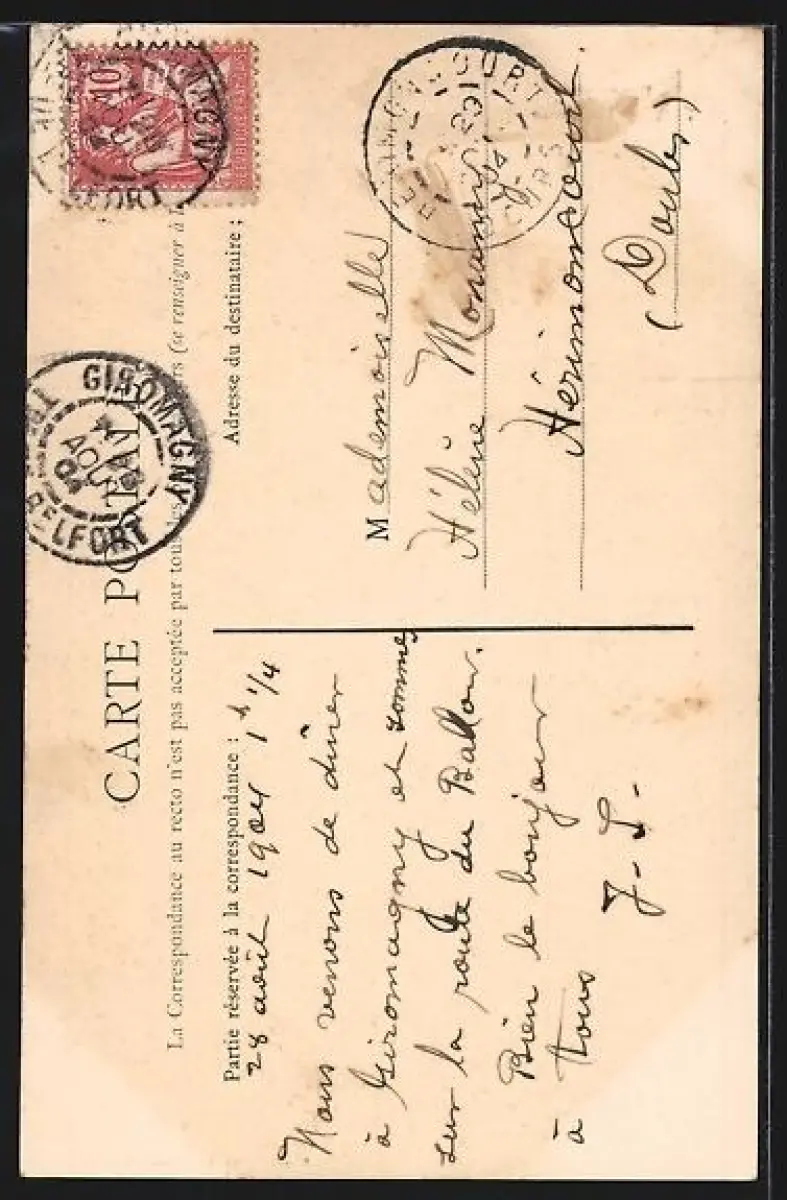 CARTE POSTALE
La Correspondance au recto n'est pas acceptée par tous les (se renseigner à l
Partie réservée à la correspondance :
28 août 1904 1h 1/4
Nous venons de dîner
à Giromagny et sommes
sur la route du Ballon.
Bien le bonjour
à tous
Adresse du destinataire :
Mademoiselle
Hélène
Hérimoncourt.
(Doubs)
10
GIROMAGNY
AOUT
04
BELFORT
MAGNY
FORT